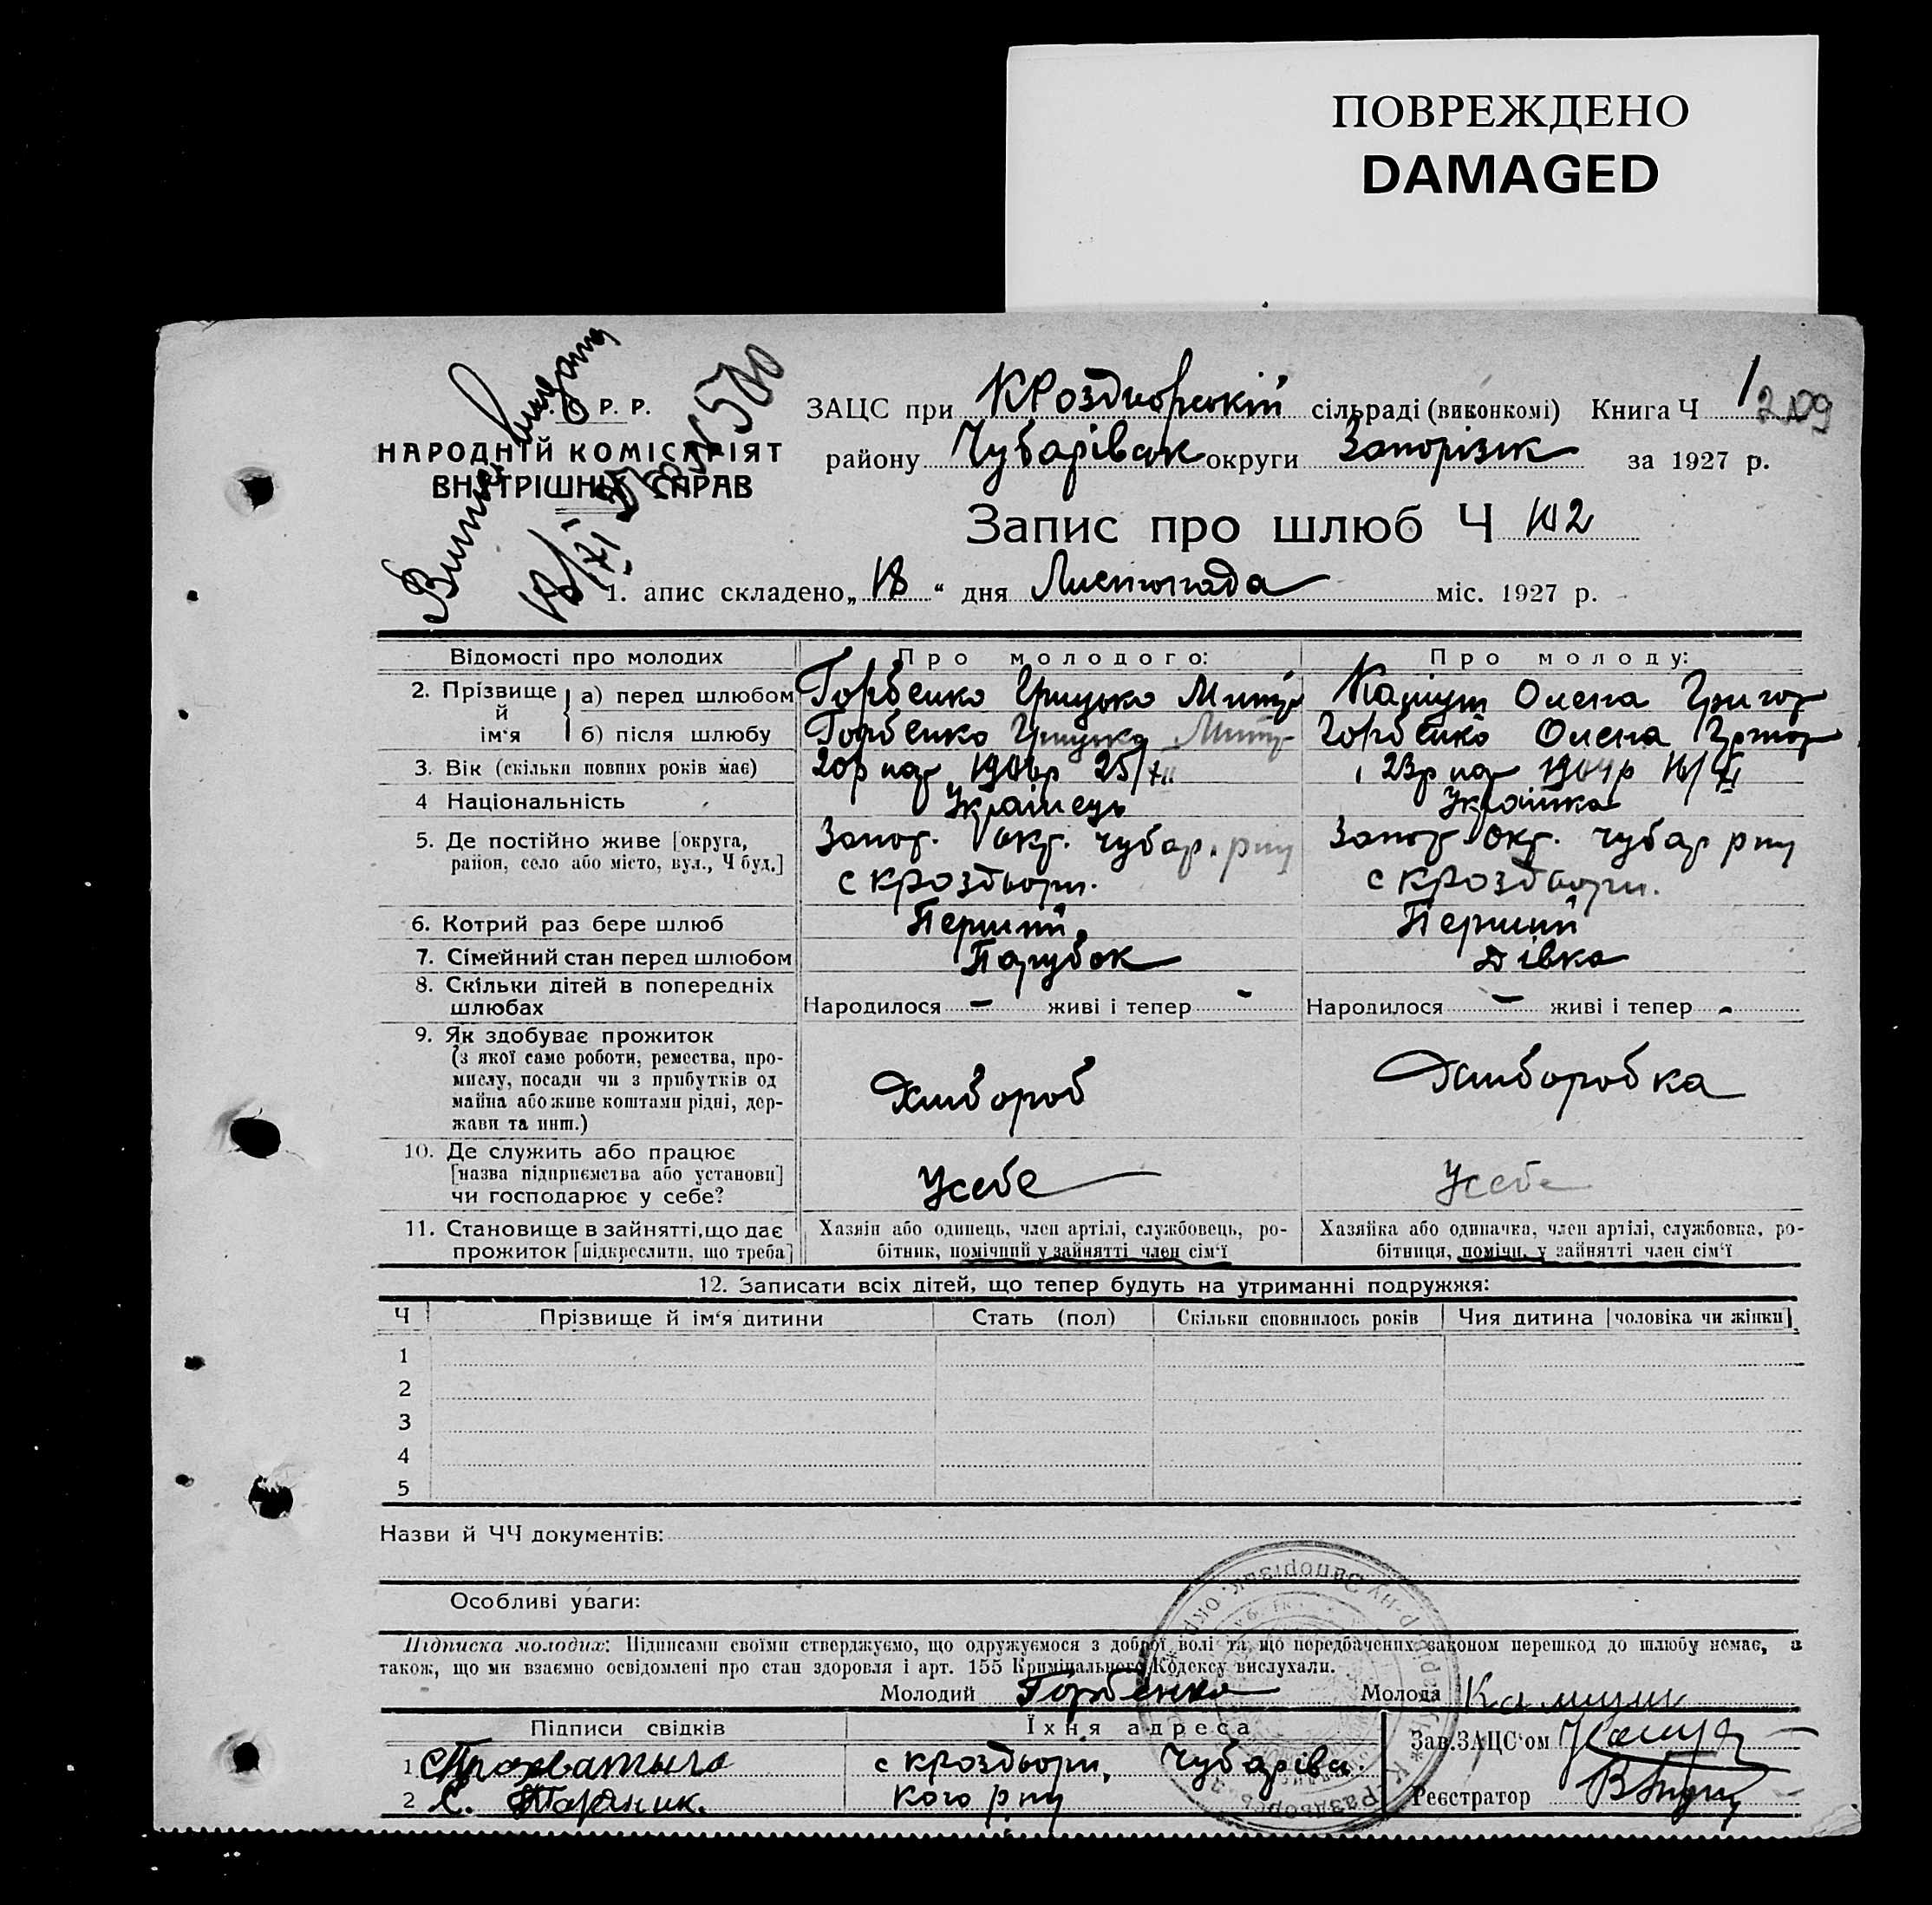 ПОВРЕЖДЕНО
DAMAGED
Р. Р.
НАРОДНІЙ КОМІСАРІЯТ
ВНУТРІШНІХ СПРАВ
ЗАЦС при КРоздторській сільраді (виконкомі) Книга Ч 1 209
району Чубарівськ округи Запорізьк за 1927 р.
Запис про шлюб Ч 102
1. апис складено „18“ дня Листопада міс. 1927 р.
Відомості про молодих Про молодого: Про молоду:
2. Прізвище й ім‘я а) перед шлюбом Горбенко Грицько Митр Олена Григор
б) після шлюбу Горбенко Грицько Митр Горбенко Олена Григор
3. Вік (скільки повних років має) 20р 23р
4 Національність Українець Українка
5. Де постійно живе [округа, Запор. окр. Чубар. рну Запор окр. Чубар рну
район, село або місто, вул., Ч буд.] с кроздьори. с кроздьори.
6. Котрий раз бере шлюб Перший Перший
7. Сімейний стан перед шлюбом Парубок Дівка
8. Скільки дітей в попередніх
шлюбах Народилося - живі і тепер - Народилося - живі і тепер -
9. Як здобуває прожиток
(з якої саме роботи, ремества, про-
мислу, посади чи з прибутків од
майна або живе коштами рідні, дер-
жави та инш.) Хлібороб Хліборобка
10. Де служить або працює
[назва підприємства або установи]
чи господарює у себе? Усебе Усебе
11. Становище в зайнятті, що дає Хазяін або одинець, член артілі, службовець, ро- Хазяйка або одиначка, член артілі, службовка, ро-
прожиток [підкреслити, що треба] бітник, помічний у зайнятті член сім‘ї бітниця, помічн. у зайнятті член сім‘ї
12. Записати всіх дітей, що тепер будуть на утриманні подружжя:
Ч Прізвище й ім‘я дитини Стать (пол) Скільки сповнилось років Чия дитина [чоловіка чи жінки]
1
2
3
4
5
Назви й ЧЧ документів:
Особливі уваги:
Підписка молодих: Підписами своїми стверджуємо, що одружуємося з доброї волі та, що передбачених законом перешкод до шлюбу немає, а
також, що ми взаємно освідомлені про стан здоровля і арт. 155 Кримінального Кодексу вислухали.
Молодий Горбенко Молода
Підписи свідків Їхня адреса Зав. ЗАЦС‘ом
1 с кроздьори, Чубарівс
2 С. кого рну Реєстратор